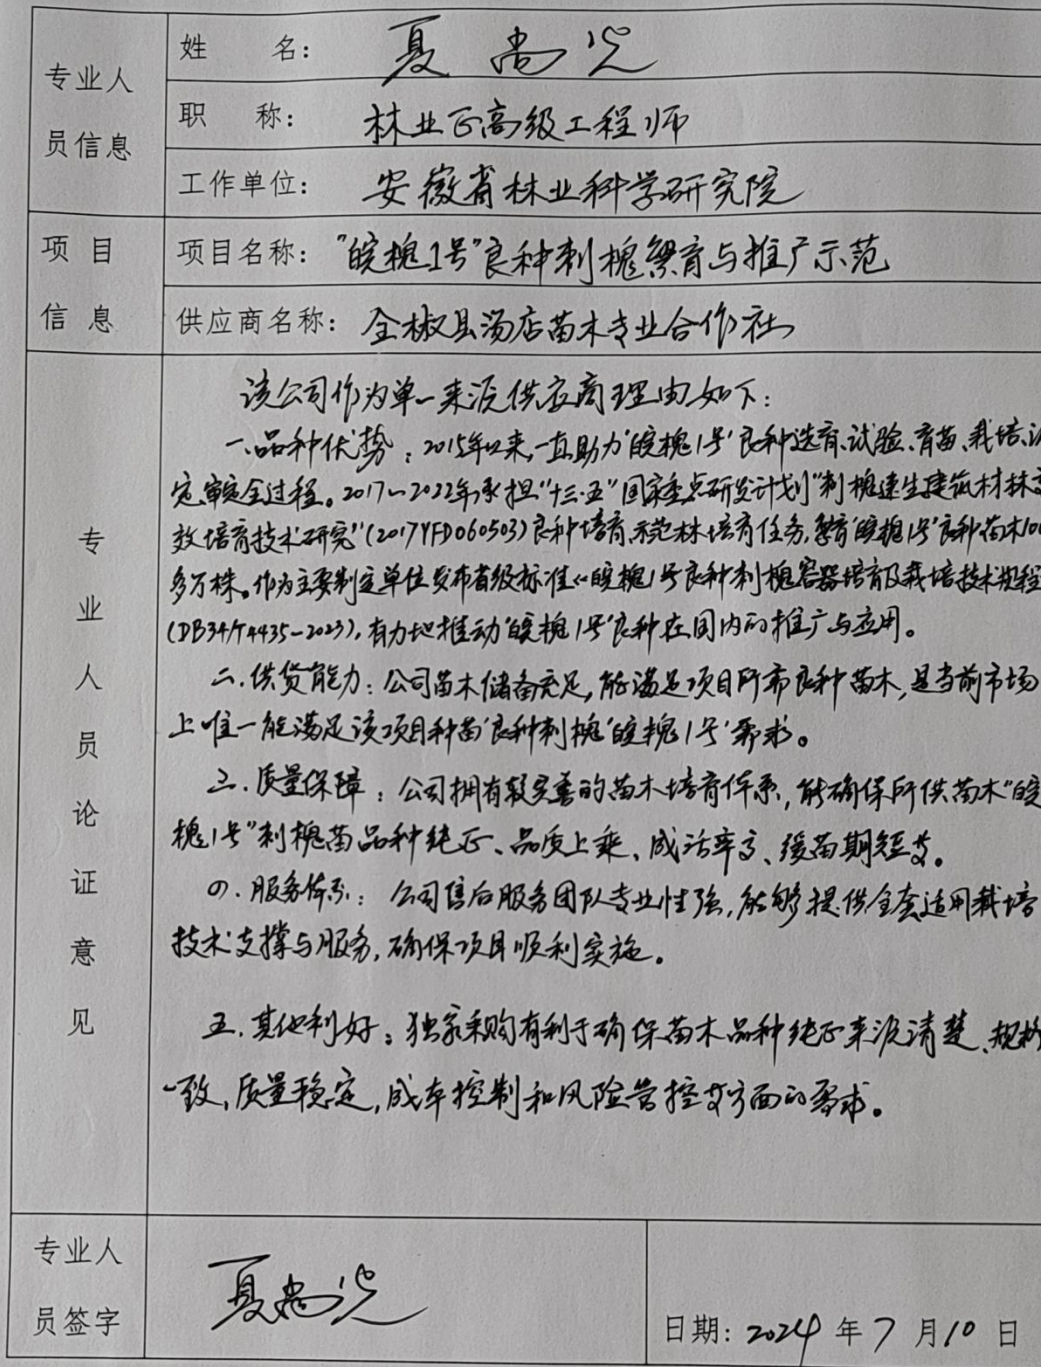 专业人员信息
姓 名: 夏尚光
职 称: 林业正高级工程师
工作单位: 安徽省林业科学研究院
项目信息
项目名称: "皖槐1号"良种刺槐繁育与推广示范
供应商名称: 全椒县汤店苗木专业合作社
专业人员论证意见
该公司作为单一来源供应商理由如下:
一、品种优势:2015年以来,一直助力'皖槐1号'良种选育、试验、育苗、栽培、认
定、审定全过程。2017~2022年承担"十三·五"国家重点研发计划"刺槐速生建筑材林高
效培育技术研究"(2017YFD060503)良种培育、示范林培育任务,繁育'皖槐1号'良种苗木100
多万株。作为主要制定单位发布省级标准《皖槐1号良种刺槐容器培育及栽培技术规程》
(DB34/T4435-2023),有力地推动'皖槐1号'良种在国内的推广与应用。
二、供货能力:公司苗木储备充足,能满足项目所需良种苗木,是当前市场
上唯一能满足该项目种苗'良种刺槐'皖槐1号'需求。
三、质量保障:公司拥有较完善的苗木培育体系,能确保所供苗木"皖
槐1号"刺槐苗品种纯正、品质上乘、成活率高、缓苗期短等。
四、服务体系:公司售后服务团队专业性强,能够提供全套适用栽培
技术支撑与服务,确保项目顺利实施。
五、其他利好:独家采购有利于确保苗木品种纯正来源清楚、规格
一致,质量稳定,成本控制和风险管控等方面的需求。
专业人员签字
夏尚光
日期: 2024年7月10日